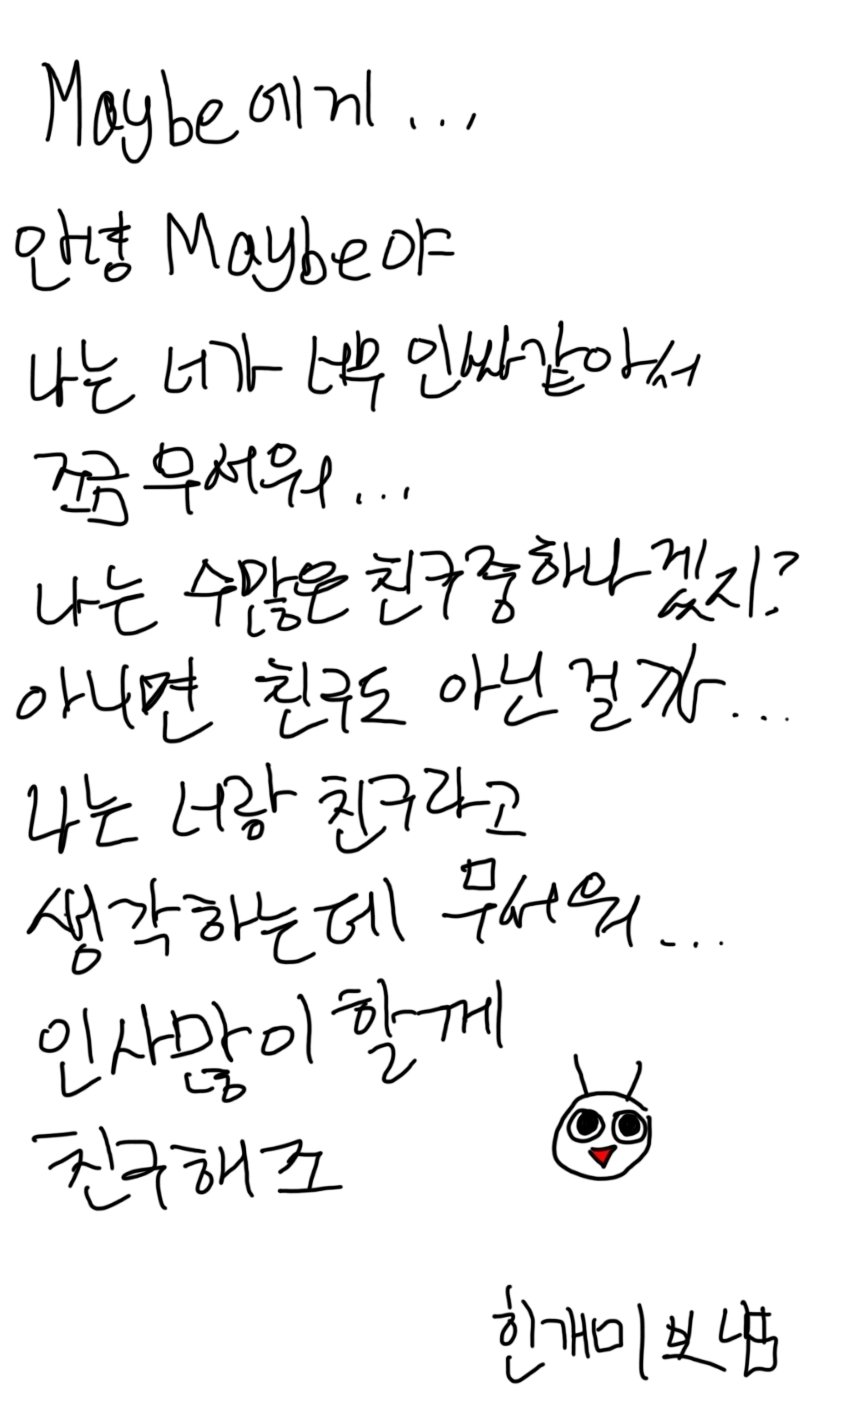 Maybe에게...
안녕 Maybe야
나는 너가 너무 인싸같아서
쪼끔 무서워...
나는 수많은 친구중 하나겠지?
아니면 친구도 아닌걸까...
나는 너랑 친구라고
생각하는데 무서워...
인사많이 할게
친구해조
한개미 보냄